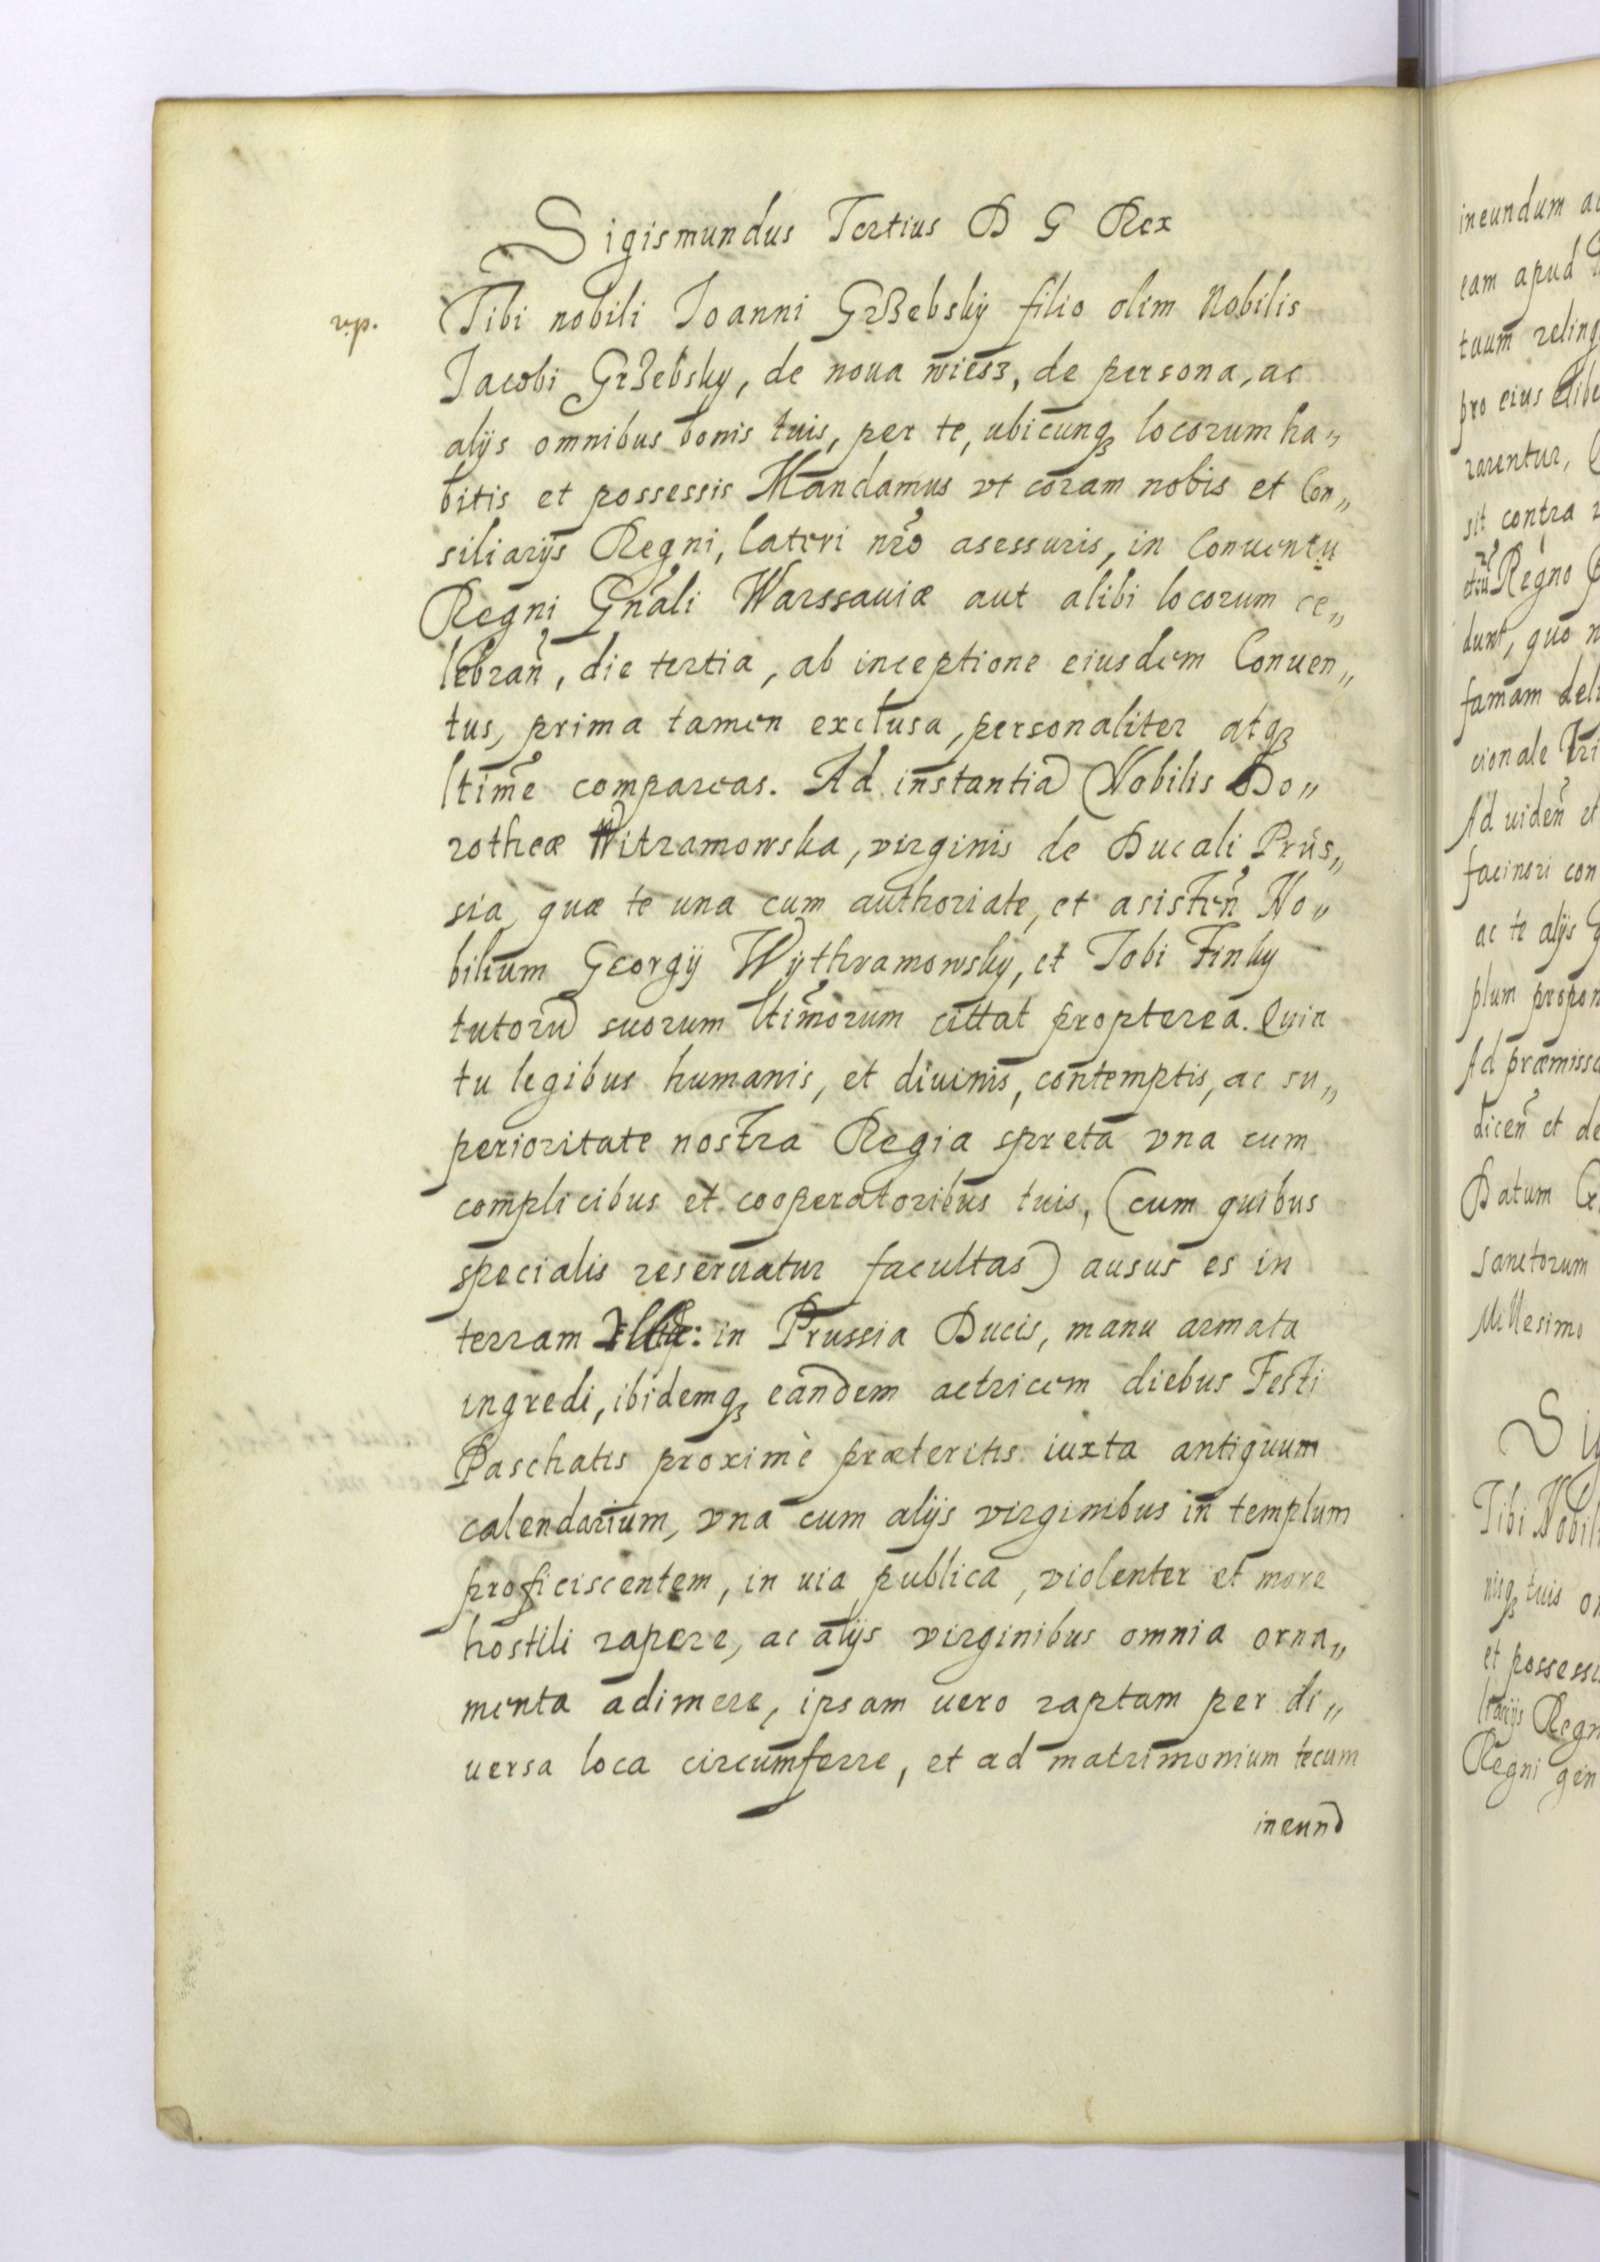 Sigismundus Tertius D G Rex
Tibi nobili Joanni Grzebsky filio olim Nobilis
Jacobi Grzebsky, de noua wiesz, de persona, ac
alijs omnibus bonis tuis, per te, ubicunqꝫ locorum ha„
bitis et possessis Mandamus vt coram nobis et Con„
siliarijs Regni, lateri nro asessuris, in Conuentu
Regni Gnali Warssauiæ aut alibi locorum ce„
lebran, die tertia, ab inceptione eiusdem Conuen„
tus, prima tamen exclusa, personaliter atqꝫ
ltime compareas. Ad instantia Nobilis Do„
rotheæ Witramowska, virginis de Ducali Prus„
sia, quæ te una cum authoriate, et asisten No„
bilium Georgij Wythramowsky, et Jobi Finky
tutoru suorum ltimorum cittat propterea. Quia
tu legibus humanis, et diuinis, contemptis, ac su„
perioritate nostra Regia spreta vna cum
complicibus et cooperatoribus tuis, (cum quibus
specialis reseruatur facultas) ausus es in
terram in Prussia Ducis, manu armata
ingredi, ibidemqꝫ eandem actricem diebus Festi
Paschatis proximè præteritis iuxta antiquum
calendarium, vna cum alijs virginibus in templum
proficiscentem, in uia publica, violenter et more
hostili rapere, ac alijs virginibus omnia orna„
menta adimere, ipsam uero raptam per di„
uersa loca circumferre, et ad matrimonium tecum
ineund
ineundum
eam apud
taum
pro eius
rarentur,
sit contra
Regno
dunt, quo
famam
cionale
Ad uiden et
facinori con
ac te alijs
plum propon
Ad præmissa
dicen et de
Datum
sanctorum
Millesimo
Tibi Nobili
nisqꝫ tuis
et possessi
Regn
Regni gen